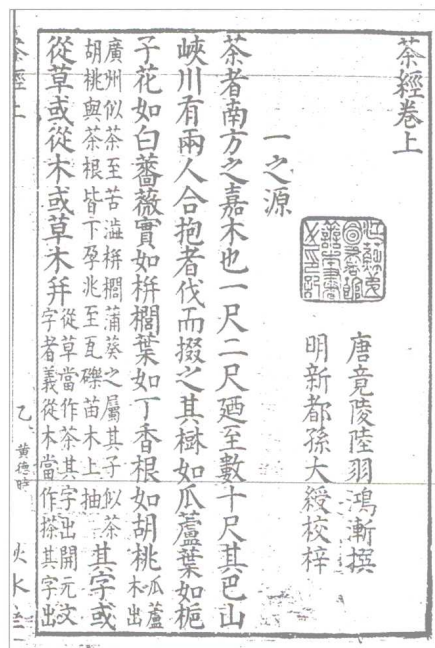 茶經卷上
唐竟陵陸羽鴻漸撰
明新都孫大綬校梓
一之源
茶者南方之嘉木也一尺二尺廼至數十尺其巴山
峽川有兩人合抱者伐而掇之其樹如瓜蘆葉如梔
子花如白薔薇實如栟櫚葉如丁香根如胡桃瓜蘆木出
廣州似茶至苦澁栟櫚蒲葵之屬其子似茶胡桃與茶根皆下孕兆至瓦礫苗木上抽其字或
從草或從木或草木幷從草當作茶其字出開元文字者義從木當作搽其字出
茶經上
乙
黃德時